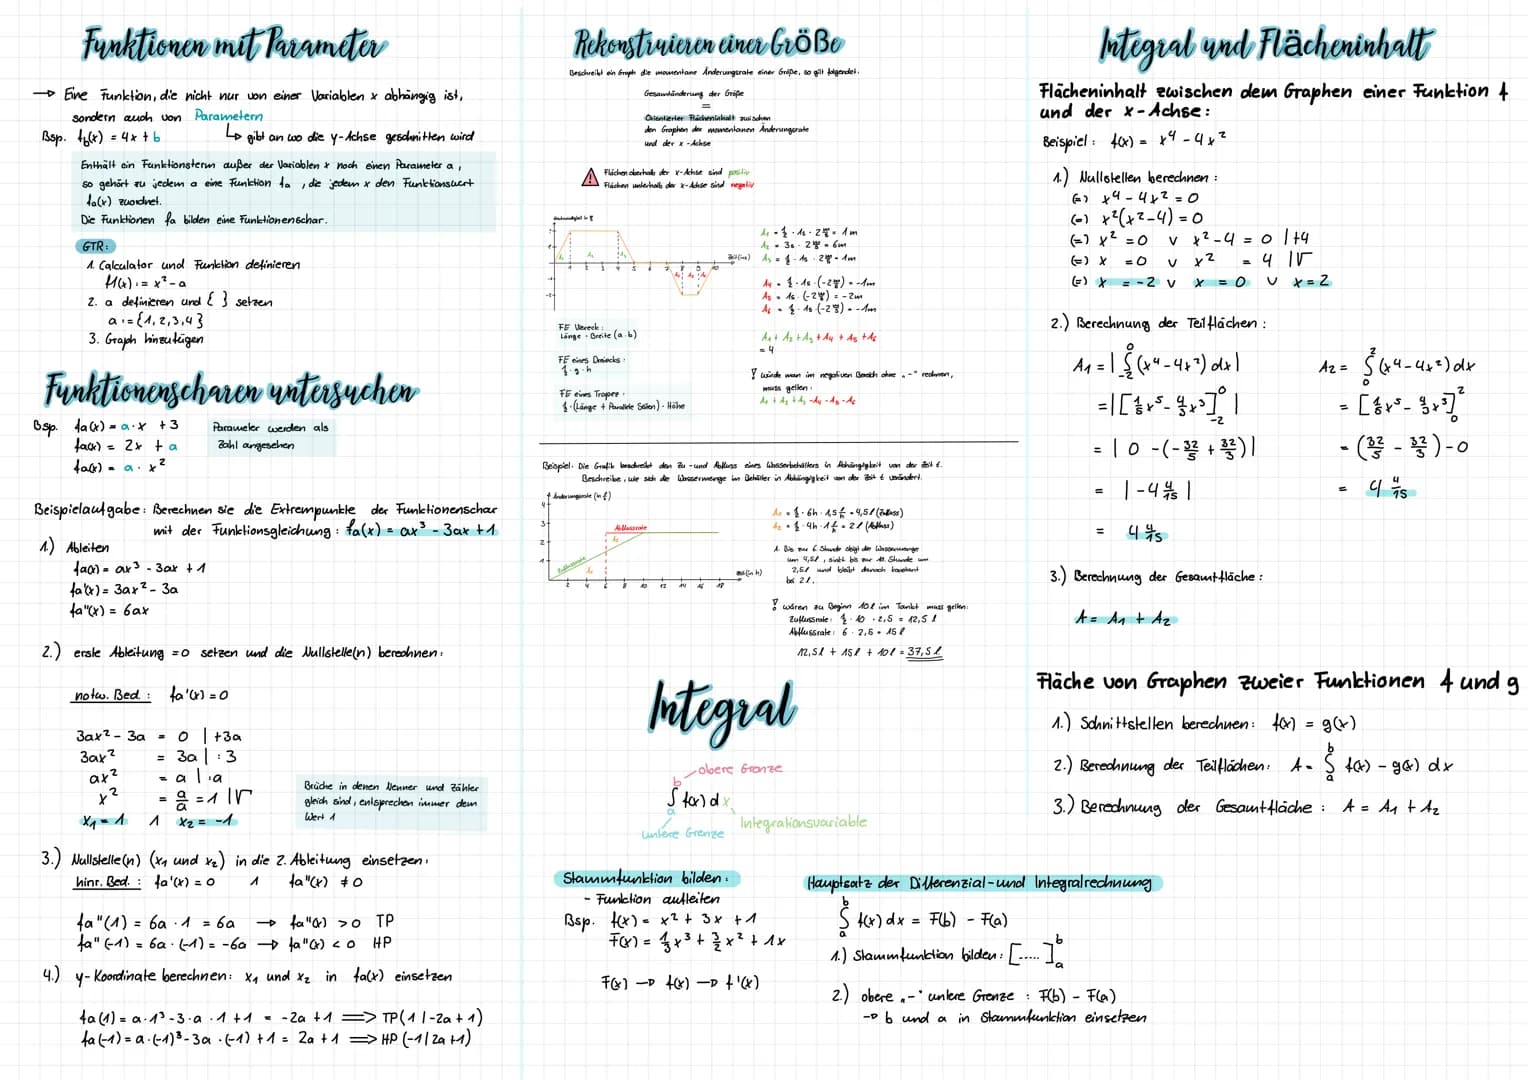 Funktionen mit Parameter
→ Eine Funktion, die nicht nur von einer Variablen x abhängig ist,
sondern auch von Parametern
Bsp. f_b(x) = 4x + b
↳ gibt an wo die y-Achse geschnitten wird
Enthält ein Funktionsterm außer der Variablen x noch einen Parameter a,
so gehört zu jedem a eine Funktion fa, die jedem x den Funktionswert
fa(x) zuordnet.
Die Funktionen fa bilden eine Funktionenschar.
GTR:
1. Calculator und Funktion definieren
f1(x) := x² - a
2. a definieren und { } setzen
a := {1, 2, 3, 4}
3. Graph hinzufügen
Funktionenscharen untersuchen
Bsp. fa(x) = a · x + 3
fa(x) = 2x + a
fa(x) = a · x²
Parameter werden als
Zahl angesehen
Beispielaufgabe: Berechnen sie die Extrempunkte der Funktionenschar
mit der Funktionsgleichung: fa(x) = ax³ - 3ax + 1
1.) Ableiten
fa(x) = ax³ - 3ax + 1
fa'(x) = 3ax² - 3a
fa''(x) = 6ax
2.) erste Ableitung = 0 setzen und die Nullstelle(n) berechnen:
notw. Bed.: fa'(x) = 0
3ax² - 3a = 0 | +3a
3ax² = 3a | : 3
ax² = a | :a
x² = a/a = 1 | √
x₁ = 1 ∧ x₂ = -1
Brüche in denen Nenner und Zähler
gleich sind, entsprechen immer dem
Wert 1
3.) Nullstelle(n) (x₁ und x₂) in die 2. Ableitung einsetzen:
hinr. Bed.: fa'(x) = 0 ∧ fa''(x) ≠ 0
fa''(1) = 6a · 1 = 6a → fa''(x) > 0 TP
fa''(-1) = 6a · (-1) = -6a → fa''(x) < 0 HP
4.) y-Koordinate berechnen: x₁ und x₂ in fa(x) einsetzen
fa(1) = a · 1³ - 3 · a · 1 + 1 = -2a + 1 ⟹ TP(1 | -2a + 1)
fa(-1) = a · (-1)³ - 3a · (-1) + 1 = 2a + 1 ⟹ HP(-1 | 2a + 1)
Rekonstruieren einer Größe
Beschreibt ein Graph die momentane Änderungsrate einer Größe, so gilt folgendes:
Gesamtänderung der Größe
=
Orientierter Flächeninhalt zwischen
den Graphen der momentanen Änderungsrate
und der x-Achse
Flächen oberhalb der x-Achse sind positiv
Flächen unterhalb der x-Achse sind negativ
A₁ = 1/2 · 1s · 2 m/s = 1m
A₂ = 3s · 2 m/s = 6m
A₃ = 1/2 · 1s · 2 m/s = 1m
A₄ = 1/2 · 1s · (-2 m/s) = -1m
A₅ = 1s · (-2 m/s) = -2m
A₆ = 1/2 · 1s · (-2 m/s) = -1m
A₁ + A₂ + A₃ + A₄ + A₅ + A₆
= 4
FE Viereck:
Länge · Breite (a · b)
FE eines Dreiecks:
1/2 · g · h
FE eines Trapez:
1/2 · (Länge + Parallele Seiten) · Höhe
! würde man im negativen Bereich ohne „-" rechnen,
muss gelten:
A₁ + A₂ + A₃ - A₄ - A₅ - A₆
Beispiel: Die Grafik beschreibt den Zu- und Abfluss eines Wasserbehälters in Abhängigkeit von der Zeit t.
Beschreibe, wie sich die Wassermenge im Behälter in Abhängigkeit von der Zeit t verändert.
Änderungsrate (in
Abflussrate
Zuflussrate
Zeit (in h)
A₁ = 1/2 · 6h · 1,5 l/h = 4,5l (Zufluss)
A₂ = 1/2 · 4h · 1 l/h = 2l (Abfluss)
1. Bis zur 6. Stunde steigt der Wassermenge
um 4,5l, sinkt bis zur 10. Stunde um
2,5l und bleibt danach konstant
bei 2l.
! wären zu Beginn 10l im Tank muss gelten:
Zuflussrate: 1/2 · 10 · 2,5 = 12,5 l
Abflussrate: 6 · 2,5 = 15l
12,5l + 15l + 10l = 37,5l
Integral
obere Grenze
∫ₐᵇ f(x) dx
untere Grenze
Integrationsvariable
Stammfunktion bilden:
- Funktion aufleiten
Bsp. f(x) = x² + 3x + 1
F(x) = 1/3 x³ + 3/2 x² + 1x
F(x) → f(x) → f'(x)
Hauptsatz der Differenzial- und Integralrechnung
∫ₐᵇ f(x) dx = F(b) - F(a)
1.) Stammfunktion bilden: [.....]ₐᵇ
2.) obere „-" untere Grenze: F(b) - F(a)
→ b und a in Stammfunktion einsetzen
Integral und Flächeninhalt
Flächeninhalt zwischen dem Graphen einer Funktion f
und der x-Achse:
Beispiel: f(x) = x⁴ - 4x²
1.) Nullstellen berechnen:
(=) x⁴ - 4x² = 0
(=) x²(x² - 4) = 0
(=) x² = 0 ∨ x² - 4 = 0 | +4
(=) x = 0 ∨ x² = 4 | √
(=) x = -2 ∨ x = 0 ∨ x = 2
2.) Berechnung der Teilflächen:
A₁ = | ∫₋₂⁰ (x⁴ - 4x²) dx |
= | [1/5 x⁵ - 4/3 x³]₋₂⁰ |
= | 0 - (-32/5 + 32/3) |
= | -4 4/15 |
= 4 4/15
A₂ = ∫₀² (x⁴ - 4x²) dx
= [1/5 x⁵ - 4/3 x³]₀²
= (32/5 - 32/3) - 0
= 4 4/15
3.) Berechnung der Gesamtfläche:
A = A₁ + A₂
Fläche von Graphen zweier Funktionen f und g
1.) Schnittstellen berechnen: f(x) = g(x)
2.) Berechnung der Teilflächen: A = ∫ₐᵇ f(x) - g(x) dx
3.) Berechnung der Gesamtfläche: A = A₁ + A₂